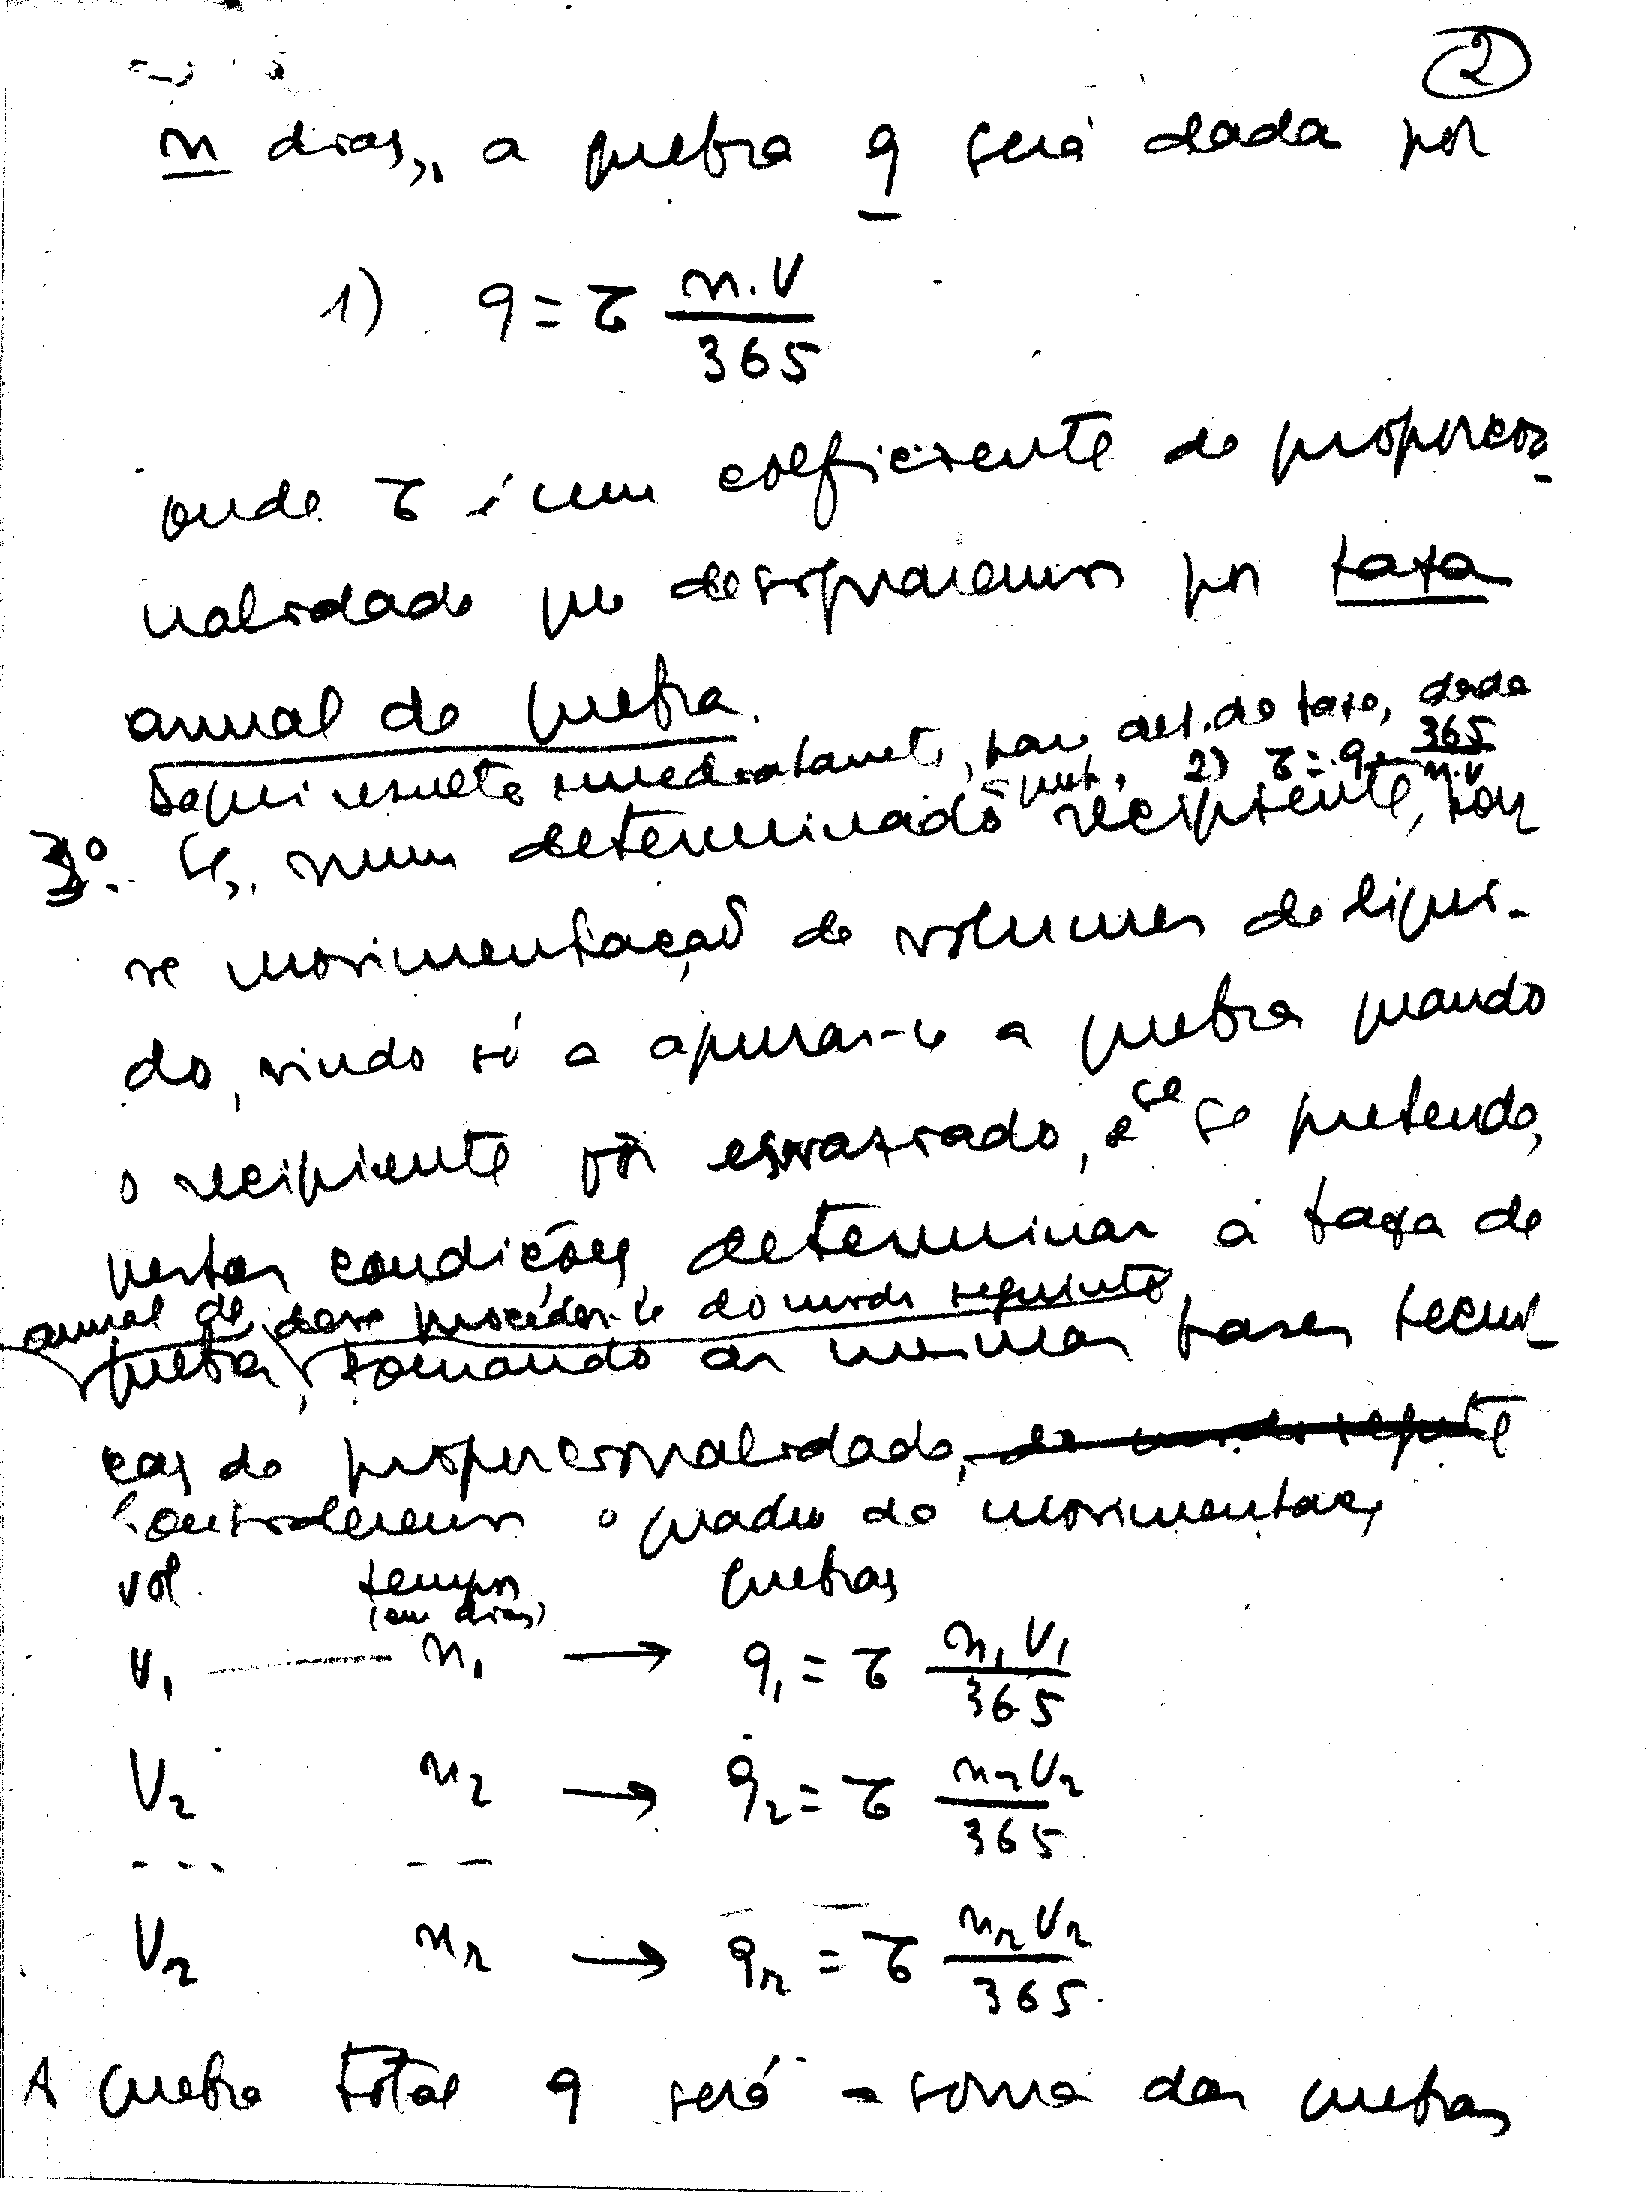 2
n dias, a quebra q será dada por
1) q = τ n.V / 365
onde τ é um coeficiente de proporcio-
nalidade que designaremos por taxa
anual de quebra.
Daqui resulta imediatamente, para det. da taxa, dada
a queb., 2) τ = q · 365 / n.V
3º. Se, num determinado recipiente, hou
ve movimentação de volumes de líqui-
do, vindo só a apurar-se a quebra quando
o recipiente foi esvasiado, e se se pretende,
nestas condições determinar a taxa de
anual de deve proceder-se do modo seguinte
quebra, tomando as mesmas bases técni-
cas de proporcionalidade, do modo seguinte
Consideremos o quadro de movimentaç,
vol. tempos quebras
(em dias)
V₁ n₁ → q₁ = τ n₁V₁ / 365
V₂ n₂ → q₂ = τ n₂V₂ / 365
... -- 
Vr nr → qr = τ nrVr / 365
A quebra total q será a soma das quebras